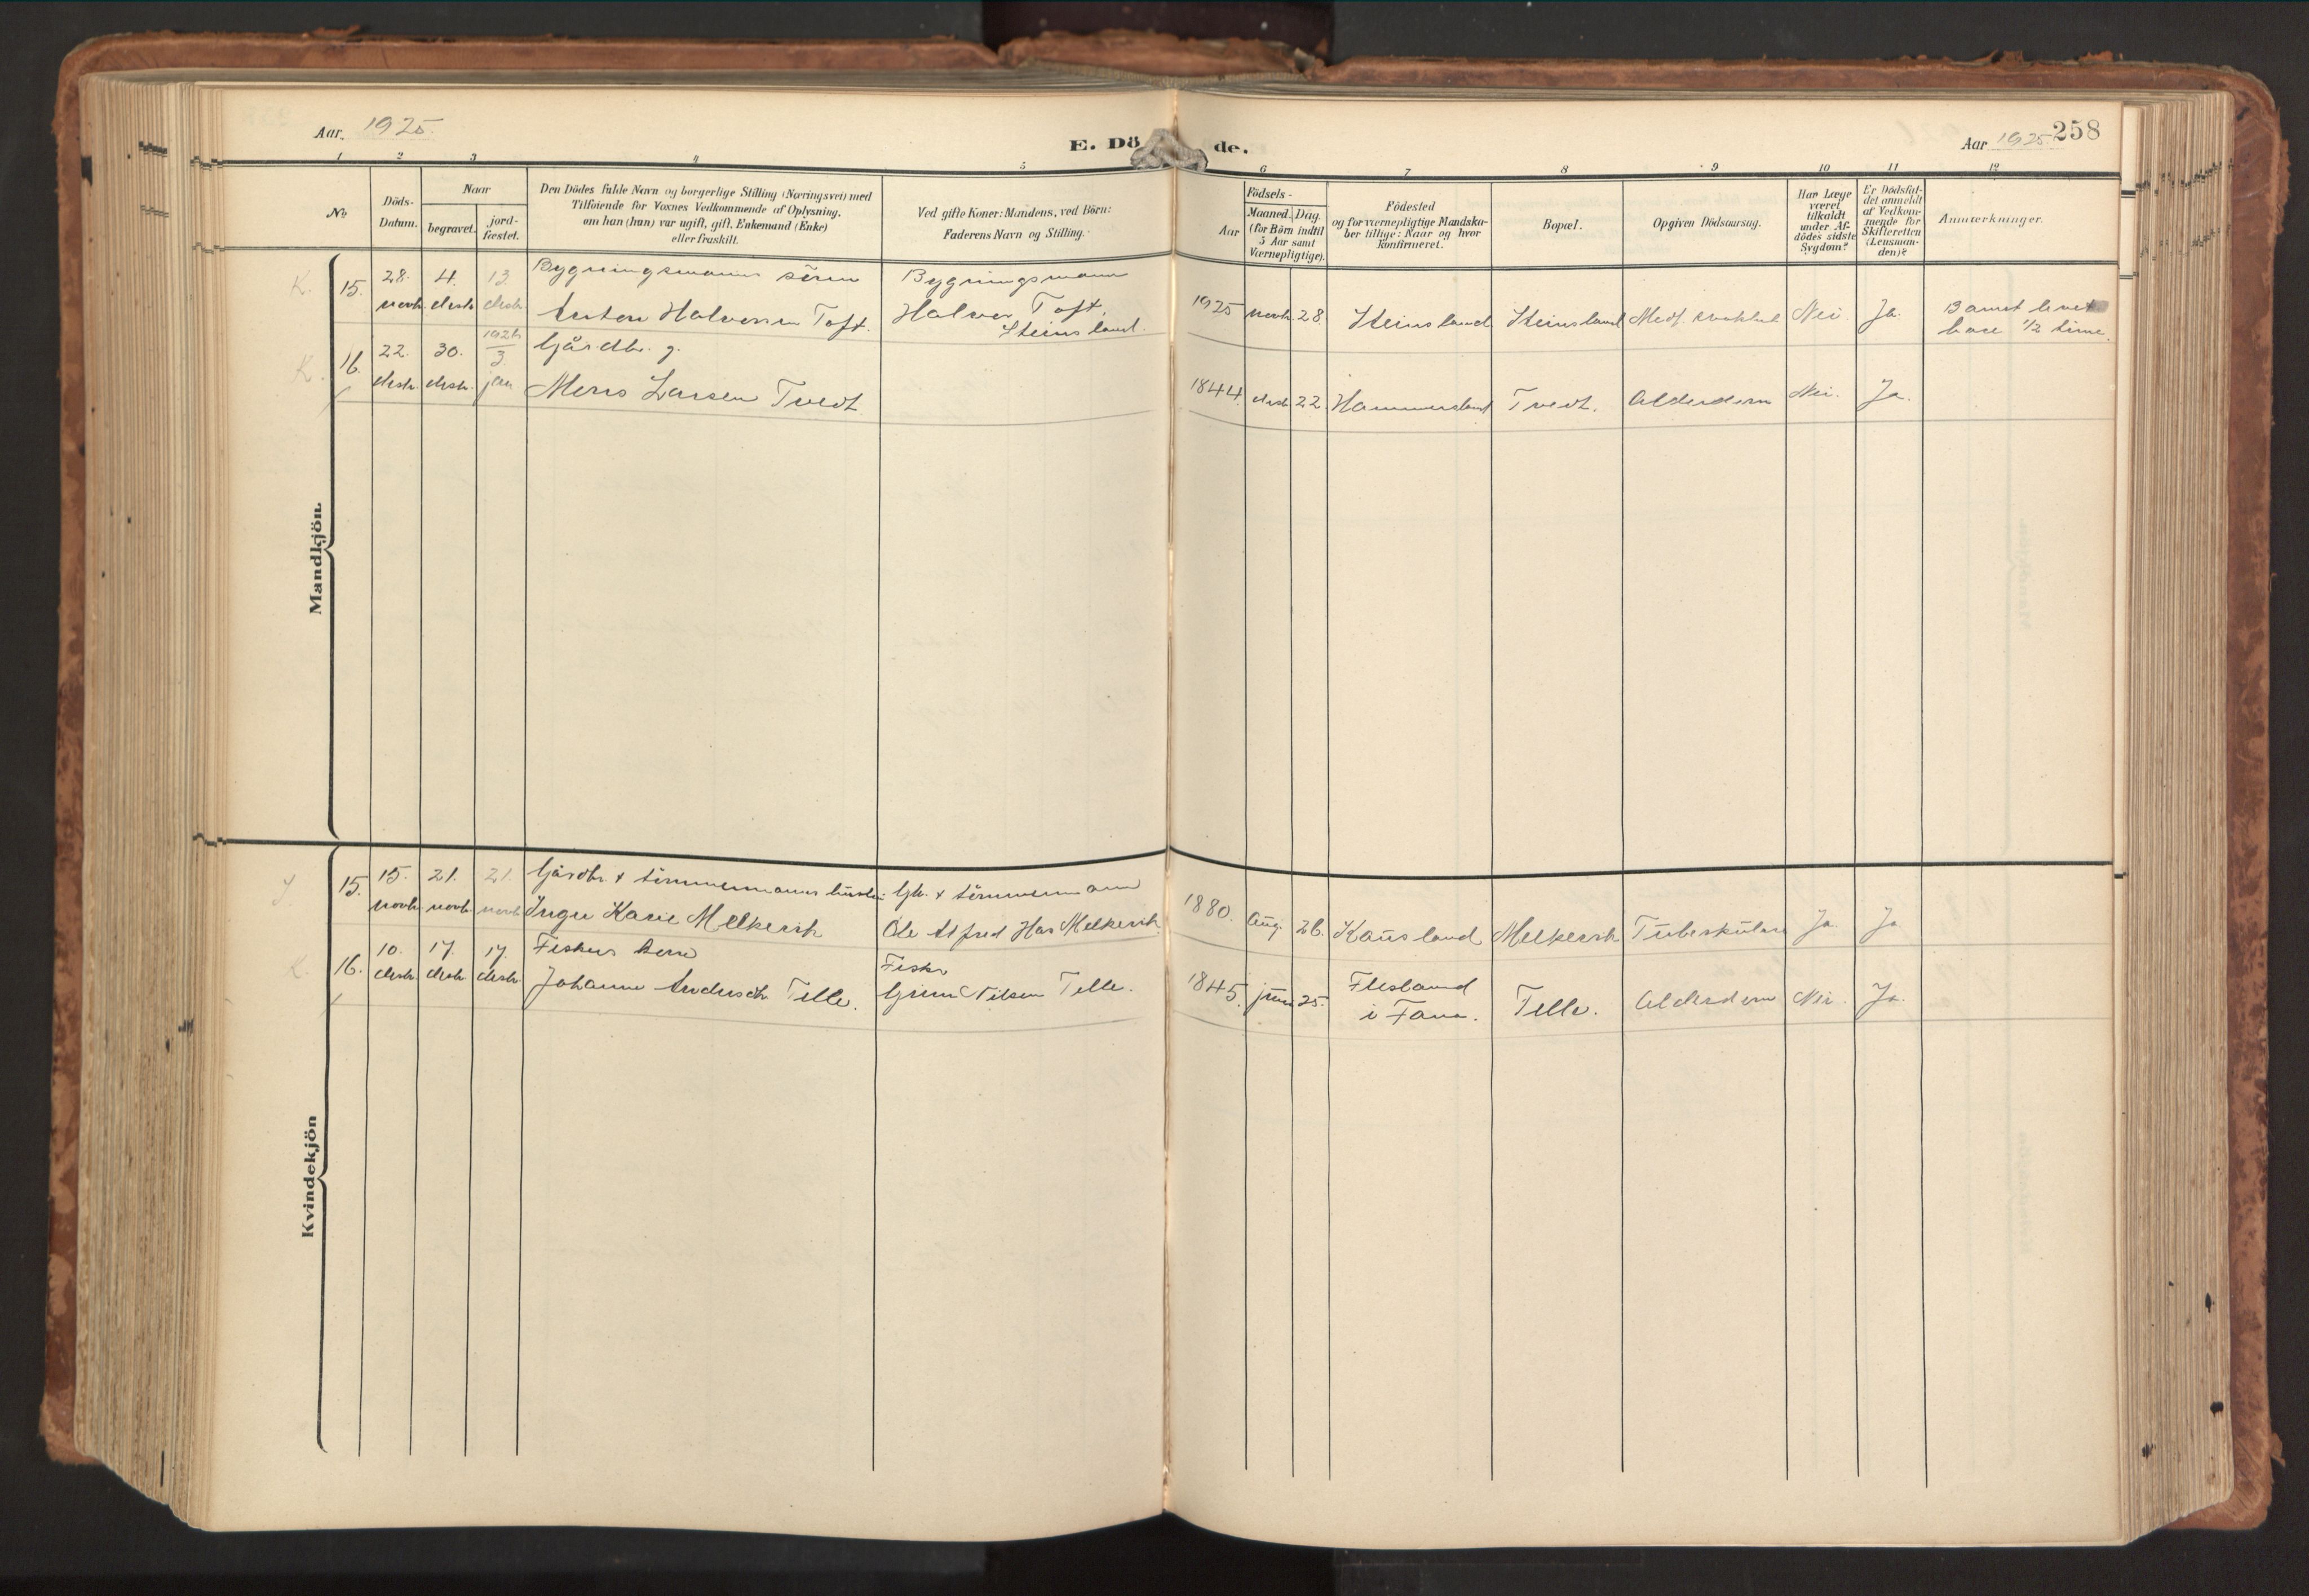 Aar. 1925.
E. Dö de.
Aar 1925. 258
1 2 3 4 5 6 7 8 9 10 11 12
No
Döds-
Datum.
Naar
begravet.
jord-
fæstet.
Den Dödes fulde Navn og borgerlige Stilling (Næringsvei) med
Tilföiende for Voxnes Vedkommende af Oplysning,
om han (hun) var ugift, gift, Enkemand (Enke)
eller fraskilt.
Ved gifte Koner: Mandens, ved Börn:
Faderens Navn og Stilling.
Födsels-
Aar
Maaned. Dag.
(for Börn indtil
5 Aar samt
Værnepligtige).
Födested
og for værnepligtige Mandska-
ber tillige: Naar og hvor
konfirmeret.
Bopæl.
Opgiven Dödsaarsag.
Har Læge
været
tilkaldt
under Af-
dödes sidste
Sygdom?
Er Dödsfal-
det anmeldt
af Vedkom-
mende for
Skifteretten
(Lensman-
den)?
Anmærkninger.
Mandkjön.
K. 15. 28. novb. 4. desb. 13. desb.
Bygningsmanns sönn
Anton Halvorsen Toft.
Bygningsmann
Halvor Toft,
Steinsland.
1925 novb. 28. Steinsland Steinsland Medf. svakhet Nei. Ja.
Barnet levet
bare 1/2 time.
K. 16. 22. desb. 30. desb. 1926 3. jan
Gårdbr. g.
Mons Larsen Tvedt
1844. desb. 22. Hammersland Tvedt. Alderdom Nei. Ja.
Kvindekjön
15. 15. novb. 21. novb. 21. novb.
Gårdbr. & tömmermanns hustru
Inga Karie Melkevik
Gb. & tömmermann
Ole Alfred Has Melkevik.
1880. Aug. 26. Kausland Melkevik Tuberkulose Ja. Ja
K. 16. 10. desb. 17. desb. 17. desb.
Fiskers kone
Johanne Andersdtr. Telle.
Fisker
Grim Nilsen Telle.
1845. juni 25. Flesland
i Fana. Telle. Alderdom Nei. Ja.